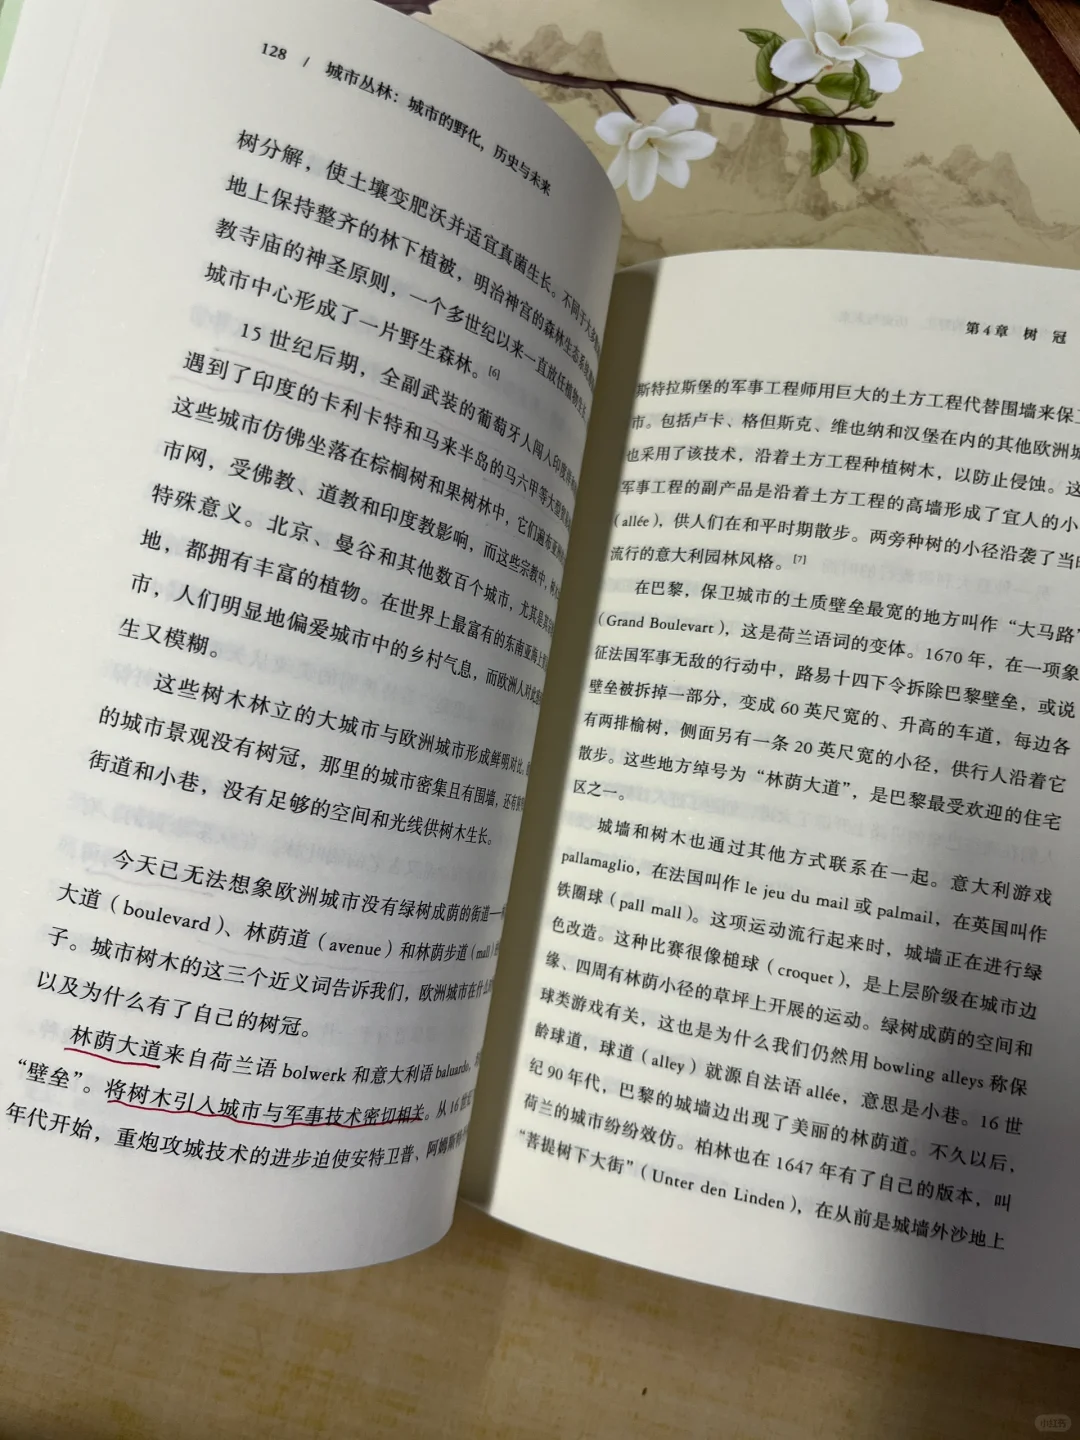 128 / 城市丛林：城市的野化，历史与未来
树分解，使土壤变肥沃并适宜真菌生长。不同于大多
地上保持整齐的林下植被，明治神宫的森林生态系统
教寺庙的神圣原则，一个多世纪以来一直放任植物生长
城市中心形成了一片野生森林。[6]
15 世纪后期，全副武装的葡萄牙人闯入印度洋
遇到了印度的卡利卡特和马来半岛的马六甲等大型贸易
这些城市仿佛坐落在棕榈树和果树林中，它们遍布亚洲
市网，受佛教、道教和印度教影响，而这些宗教中，树
特殊意义。北京、曼谷和其他数百个城市，尤其是
地，都拥有丰富的植物。在世界上最富有的东南亚海上
市，人们明显地偏爱城市中的乡村气息，而欧洲人对此
生又模糊。
这些树木林立的大城市与欧洲城市形成鲜明对比。
的城市景观没有树冠，那里的城市密集且有围墙，还有
街道和小巷，没有足够的空间和光线供树木生长。
今天已无法想象欧洲城市没有绿树成荫的街道——
大道（boulevard）、林荫道（avenue）和林荫步道（mall）
子。城市树木的这三个近义词告诉我们，欧洲城市在什么
以及为什么有了自己的树冠。
林荫大道来自荷兰语 bolwerk 和意大利语 baluardo，
“壁垒”。将树木引入城市与军事技术密切相关。从 16 世纪
年代开始，重炮攻城技术的进步迫使安特卫普、阿姆斯特丹
第4章 树 冠
斯特拉斯堡的军事工程师用巨大的土方工程代替围墙来保卫
市。包括卢卡、格但斯克、维也纳和汉堡在内的其他欧洲城
也采用了该技术，沿着土方工程种植树木，以防止侵蚀。这
军事工程的副产品是沿着土方工程的高墙形成了宜人的小
（allée），供人们在和平时期散步。两旁种树的小径沿袭了当时
流行的意大利园林风格。[7]
在巴黎，保卫城市的土质壁垒最宽的地方叫作“大马路”
（Grand Boulevart），这是荷兰语词的变体。1670 年，在一项象
征法国军事无敌的行动中，路易十四下令拆除巴黎壁垒，或说
壁垒被拆掉一部分，变成 60 英尺宽的、升高的车道，每边各
有两排榆树，侧面另有一条 20 英尺宽的小径，供行人沿着它
散步。这些地方绰号为“林荫大道”，是巴黎最受欢迎的住宅
区之一。
城墙和树木也通过其他方式联系在一起。意大利游戏
pallamaglio，在法国叫作 le jeu du mail 或 palmail，在英国叫作
铁圈球（pall mall）。这项运动流行起来时，城墙正在进行绿
色改造。这种比赛很像槌球（croquet），是上层阶级在城市边
缘、四周有林荫小径的草坪上开展的运动。绿树成荫的空间和
球类游戏有关，这也是为什么我们仍然用 bowling alleys 称保
龄球道，球道（alley）就源自法语 allée，意思是小巷。16 世
纪 90 年代，巴黎的城墙边出现了美丽的林荫道。不久以后，
荷兰的城市纷纷效仿。柏林也在 1647 年有了自己的版本，叫
“菩提树下大街”（Unter den Linden），在从前是城墙外沙地上
小红书